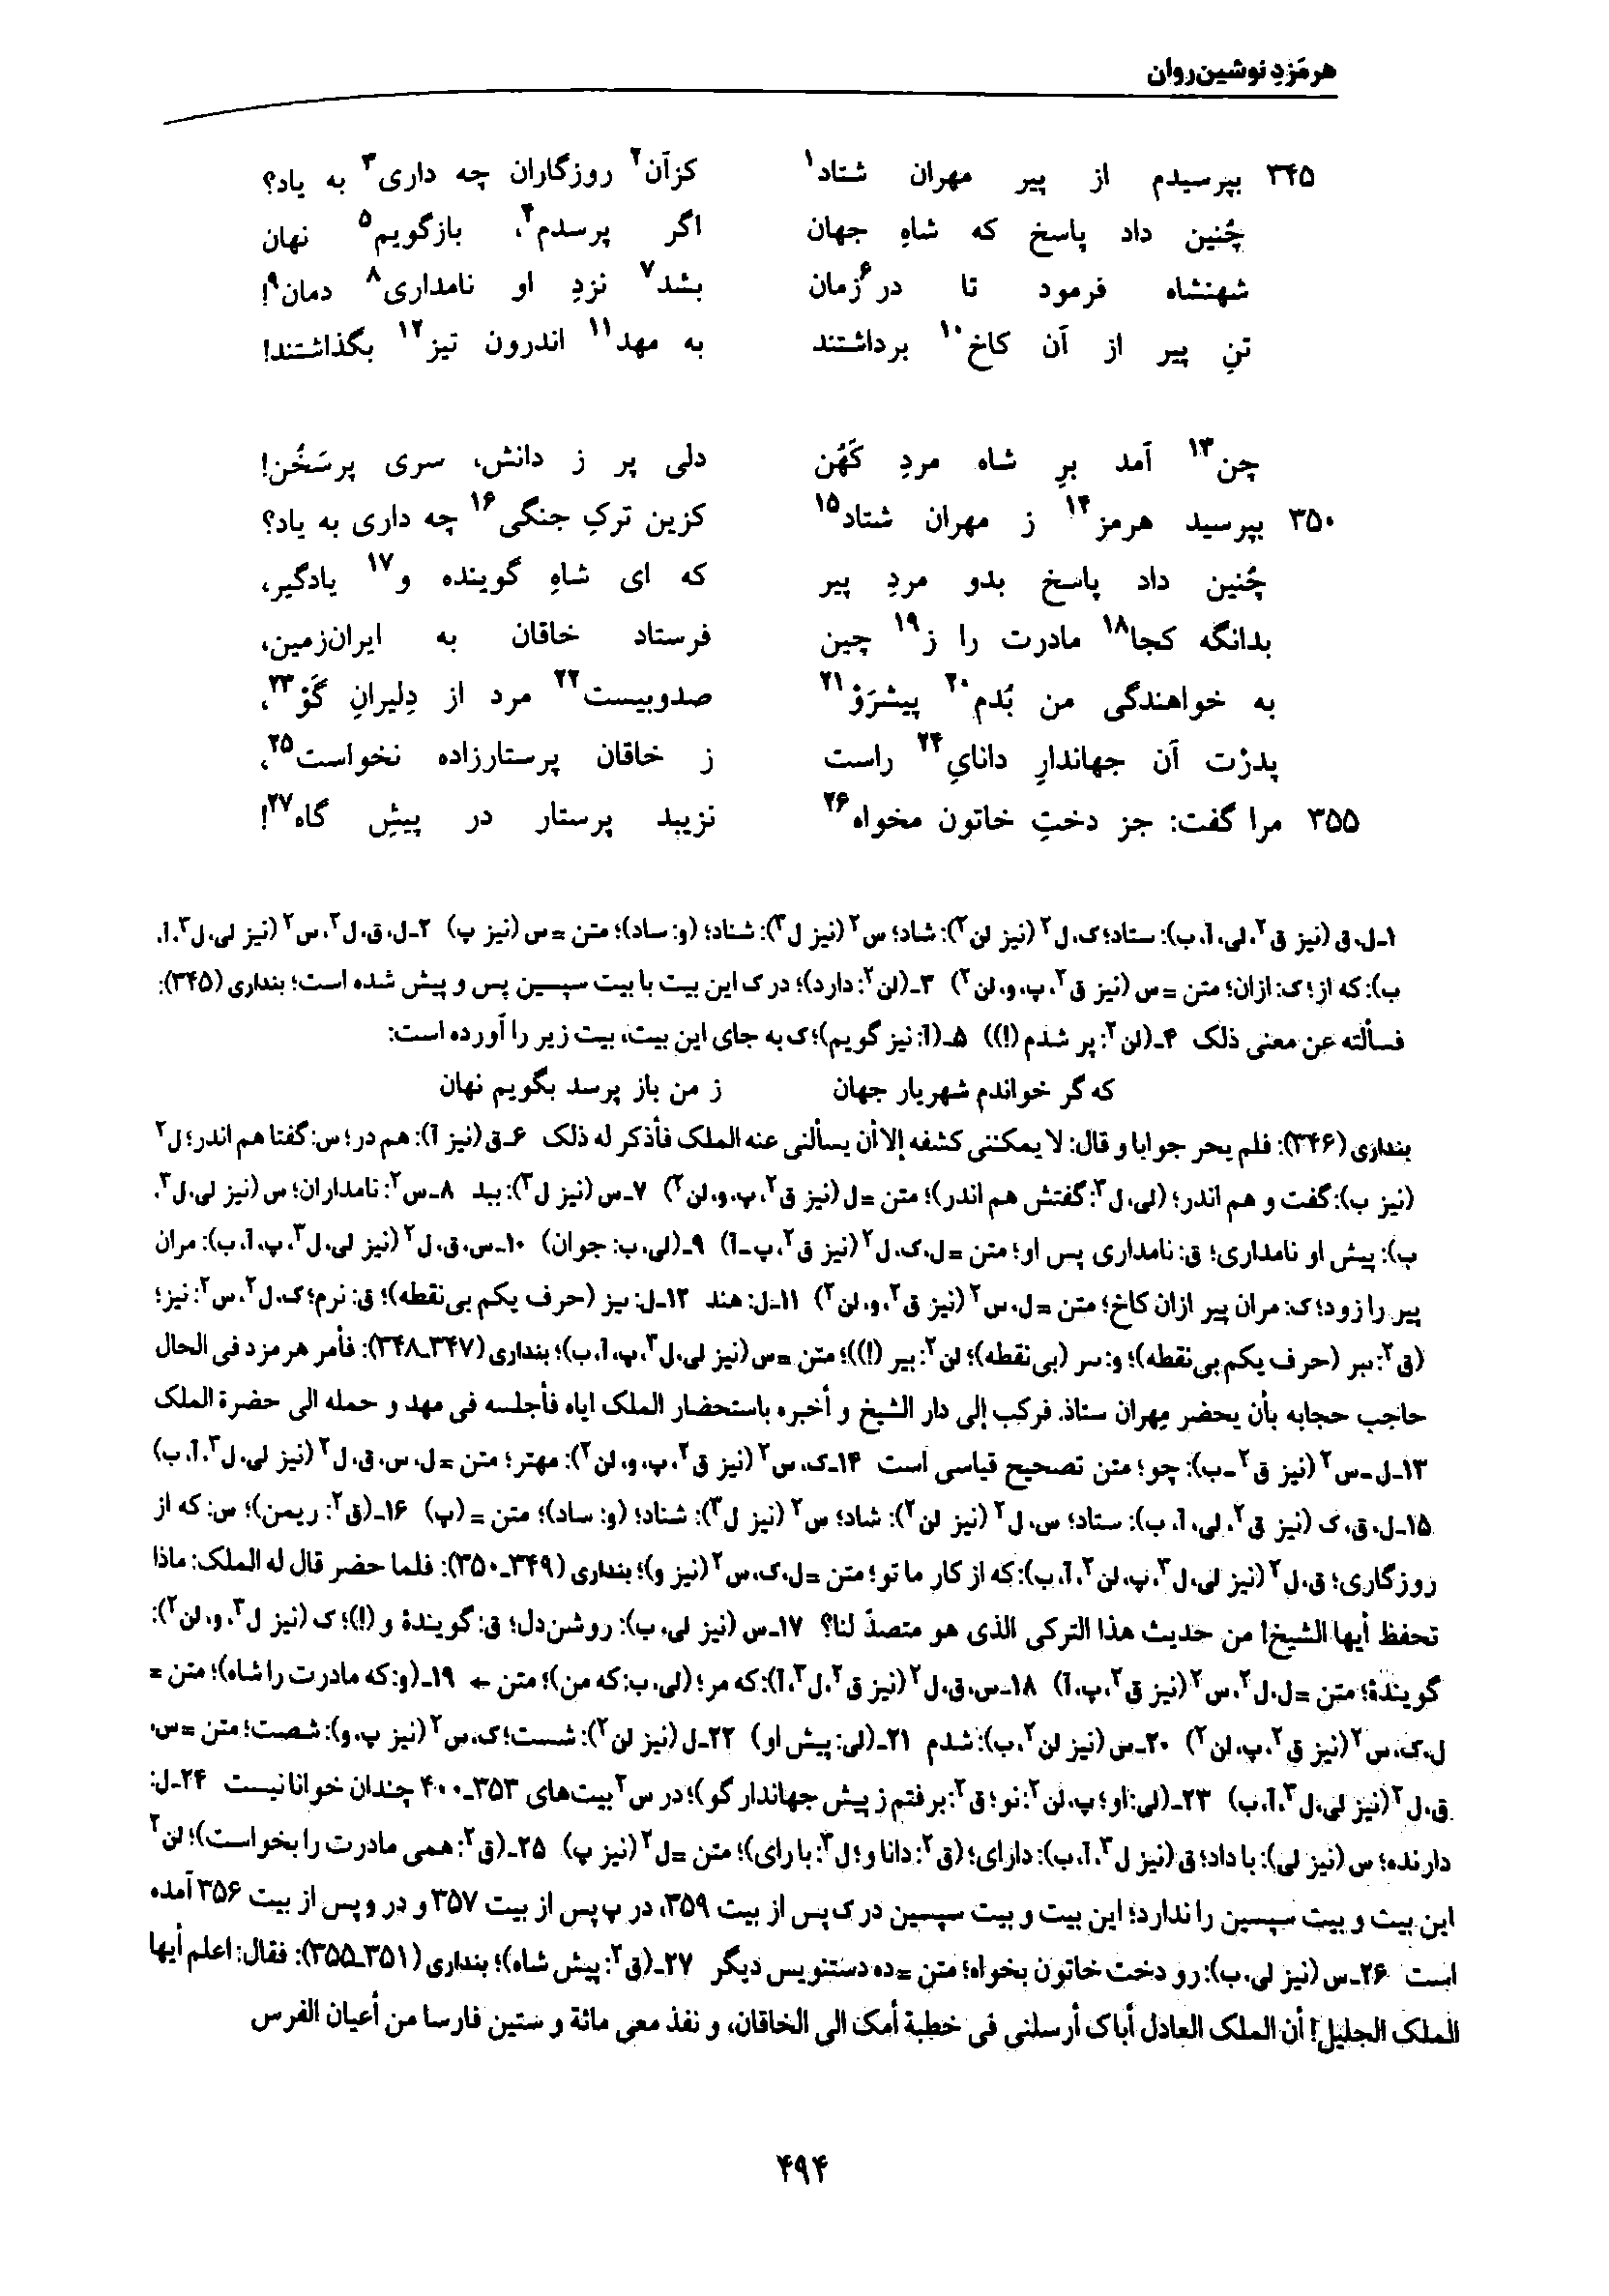 هرمَزدِ نوشین‌روان
۳۴۵ بپرسیدم از پیر مهران شتاد۱ کزآن۲ روزگاران چه داری۳ به یاد؟
چُنین داد پاسخ که شاهِ جهان اگر پرسدم۴، بازگویم۵ نهان
شهنشاه فرمود تا در۶ زمان بشد۷ نزدِ او نامداری۸ دمان۹!
تنِ پیر از آن کاخ۱۰ برداشتند به مهد۱۱ اندرون تیز۱۲ بگذاشتند!
چن۱۳ آمد برِ شاه مردِ کَهُن دلی پر ز دانش، سری پرسَخُن!
۳۵۰ بپرسید هرمز۱۴ ز مهران شتاد۱۵ کزین ترکِ جنگی۱۶ چه داری به یاد؟
چُنین داد پاسخ بدو مردِ پیر که ای شاهِ گوینده و۱۷ یادگیر،
بدانگه کجا۱۸ مادرت را ز۱۹ چین فرستاد خاقان به ایران‌زمین،
به خواهندگی من بُدم۲۰ پیشرَوْ۲۱ صدوبیست۲۲ مرد از دِلیرانِ گَوْ۲۳،
پدرْت آن جهاندارِ دانایِ۲۴ راست ز خاقان پرستارزاده نخواست۲۵،
۳۵۵ مرا گفت: جز دختِ خاتون مخواه۲۶ نزیبد پرستار در پیشِ گاه۲۷!
۱ـ‌ل، ق (نیز ق۲، لی، آ، ب): ستاد؛ ک، ل۲ (نیز لن۲): شاد؛ س۲ (نیز ل۳): شناد؛ (و: ساد)؛ متن = س (نیز پ) ۲ـ‌ل، ق، ل۲، س۲ (نیز لی، ل۳، آ،
ب): که از؛ ک: ازان؛ متن = س (نیز ق۲، پ، و، لن۲) ۳ـ (لن۲: دارد)؛ در ک این بیت با بیت سپسین پس و پیش شده است؛ بنداری (۳۴۵):
فسألته عن معنی ذلک ۴ـ (لن۲: پر شدم (!)) ۵ـ (آ: نیز گویم)؛ ک به جای این بیت، بیت زیر را آورده است:
که گر خواندم شهریار جهان ز من باز پرسد بگویم نهان
بنداری (۳۴۶): فلم یحر جوابا و قال: لا یمکننی کشفه إلا أن یسألنی عنه الملک فأذکر له ذلک ۶ـ‌ق (نیز آ): هم در؛ س: گفتا هم اندر؛ ل۲
(نیز ب): گفت و هم اندر؛ (لی، ل۳: گفتش هم اندر)؛ متن = ل (نیز ق۲، پ، و، لن۲) ۷ـ‌س (نیز ل۳): ببد ۸ـ‌س۲: نامداران؛ س (نیز لی، ل۳،
ب): پیش او نامداری؛ ق: نامداری پس او؛ متن = ل، ک، ل۲ (نیز ق۲، پ‌ـ‌آ) ۹ـ (لی، ب: جوان) ۱۰ـ‌س، ق، ل۲ (نیز لی، ل۳، پ، آ، ب): مران
پیر را زود؛ ک: مران پیر ازان کاخ؛ متن = ل، س۲ (نیز ق۲، و، لن۲) ۱۱ـ‌ل: هند ۱۲ـ‌ل: ىیز (حرف یکم بی‌نقطه)؛ ق: نرم؛ ک، ل۲، س۲: نیز؛
(ق۲: ىیر (حرف یکم بی‌نقطه)؛ و: ىىر (بی‌نقطه)؛ لن۲: بیر (!))؛ متن = س (نیز لی، ل۳، پ، آ، ب)؛ بنداری (۳۴۷ـ۳۴۸): فأمر هرمزد فی الحال
حاجب حجابه بأن یحضر مهران ستاذ. فرکب إلی دار الشیخ و أخبره باستحضار الملک ایاه فأجلسه فی مهد و حمله الی حضرة الملک
۱۳ـ‌ل‌ـ‌س۲ (نیز ق۲‌ـ‌ب): چو؛ متن تصحیح قیاسی است ۱۴ـ‌ک، س۲ (نیز ق۲، پ، و، لن۲): مهتر؛ متن = ل، س، ق، ل۲ (نیز لی، ل۳، آ، ب)
۱۵ـ‌ل، ق، ک (نیز ق۲، لی، آ، ب): ستاد؛ س، ل۲ (نیز لن۲): شاد؛ س۲ (نیز ل۳): شناد؛ (و: ساد)؛ متن = (پ) ۱۶ـ (ق۲: ریمن)؛ س: که از
روزگاری؛ ق، ل۲ (نیز لی، ل۳، پ، لن۲، آ، ب): که از کار ما تو؛ متن = ل، ک، س۲ (نیز و)؛ بنداری (۳۴۹ـ۳۵۰): فلما حضر قال له الملک: ماذا
تحفظ أیها الشیخ! من حدیث هذا الترکی الذی هو متصدّ لنا؟ ۱۷ـ‌س (نیز لی، ب): روشن‌دل؛ ق: گویندهٔ و (!)؛ ک (نیز ل۳، و، لن۲):
گویندهٔ؛ متن = ل، ل۲، س۲ (نیز ق۲، پ، آ) ۱۸ـ‌س، ق، ل۲ (نیز ق۲، ل۳، آ): که مر؛ (لی، ب: که من)؛ متن ← ۱۹ـ (و: که مادرت را شاه)؛ متن =
ل، ک، س۲ (نیز ق۲، پ، لن۲) ۲۰ـ‌س (نیز لن۲، ب): شدم ۲۱ـ (لی: پیش او) ۲۲ـ‌ل (نیز لن۲): شست؛ ک، س۲ (نیز پ، و): شصت؛ متن = س،
ق، ل۲ (نیز لی، ل۳، آ، ب) ۲۳ـ (لی: او؛ پ، لن۲: نو؛ ق۲: برفتم ز پیش جهاندار گو)؛ در س۲ بیت‌های ۳۵۳ـ۴۰۰ چندان خوانا نیست ۲۴ـ‌ل:
دارنده؛ س (نیز لی): با داد؛ ق (نیز ل۳، آ، ب): دارای؛ (ق۲: دانا و؛ ل۳: با رای)؛ متن = ل۲ (نیز پ) ۲۵ـ (ق۲: همی مادرت را بخواست)؛ لن۲
این بیت و بیت سپسین را ندارد؛ این بیت و بیت سپسین در ک پس از بیت ۳۵۹، در پ پس از بیت ۳۵۷ و در و پس از بیت ۳۵۶ آمده
است ۲۶ـ‌س (نیز لی، ب): رو دخت خاتون بخواه؛ متن = ده دستنویس دیگر ۲۷ـ (ق۲: پیش شاه)؛ بنداری (۳۵۱ـ۳۵۵): فقال: اعلم أیها
الملک الجلیل! أن الملک العادل أباک أرسلنی فی خطبة أمک الی الخاقان، و نفذ معی مائة و ستین فارسا من أعیان الفرس
۴۹۴